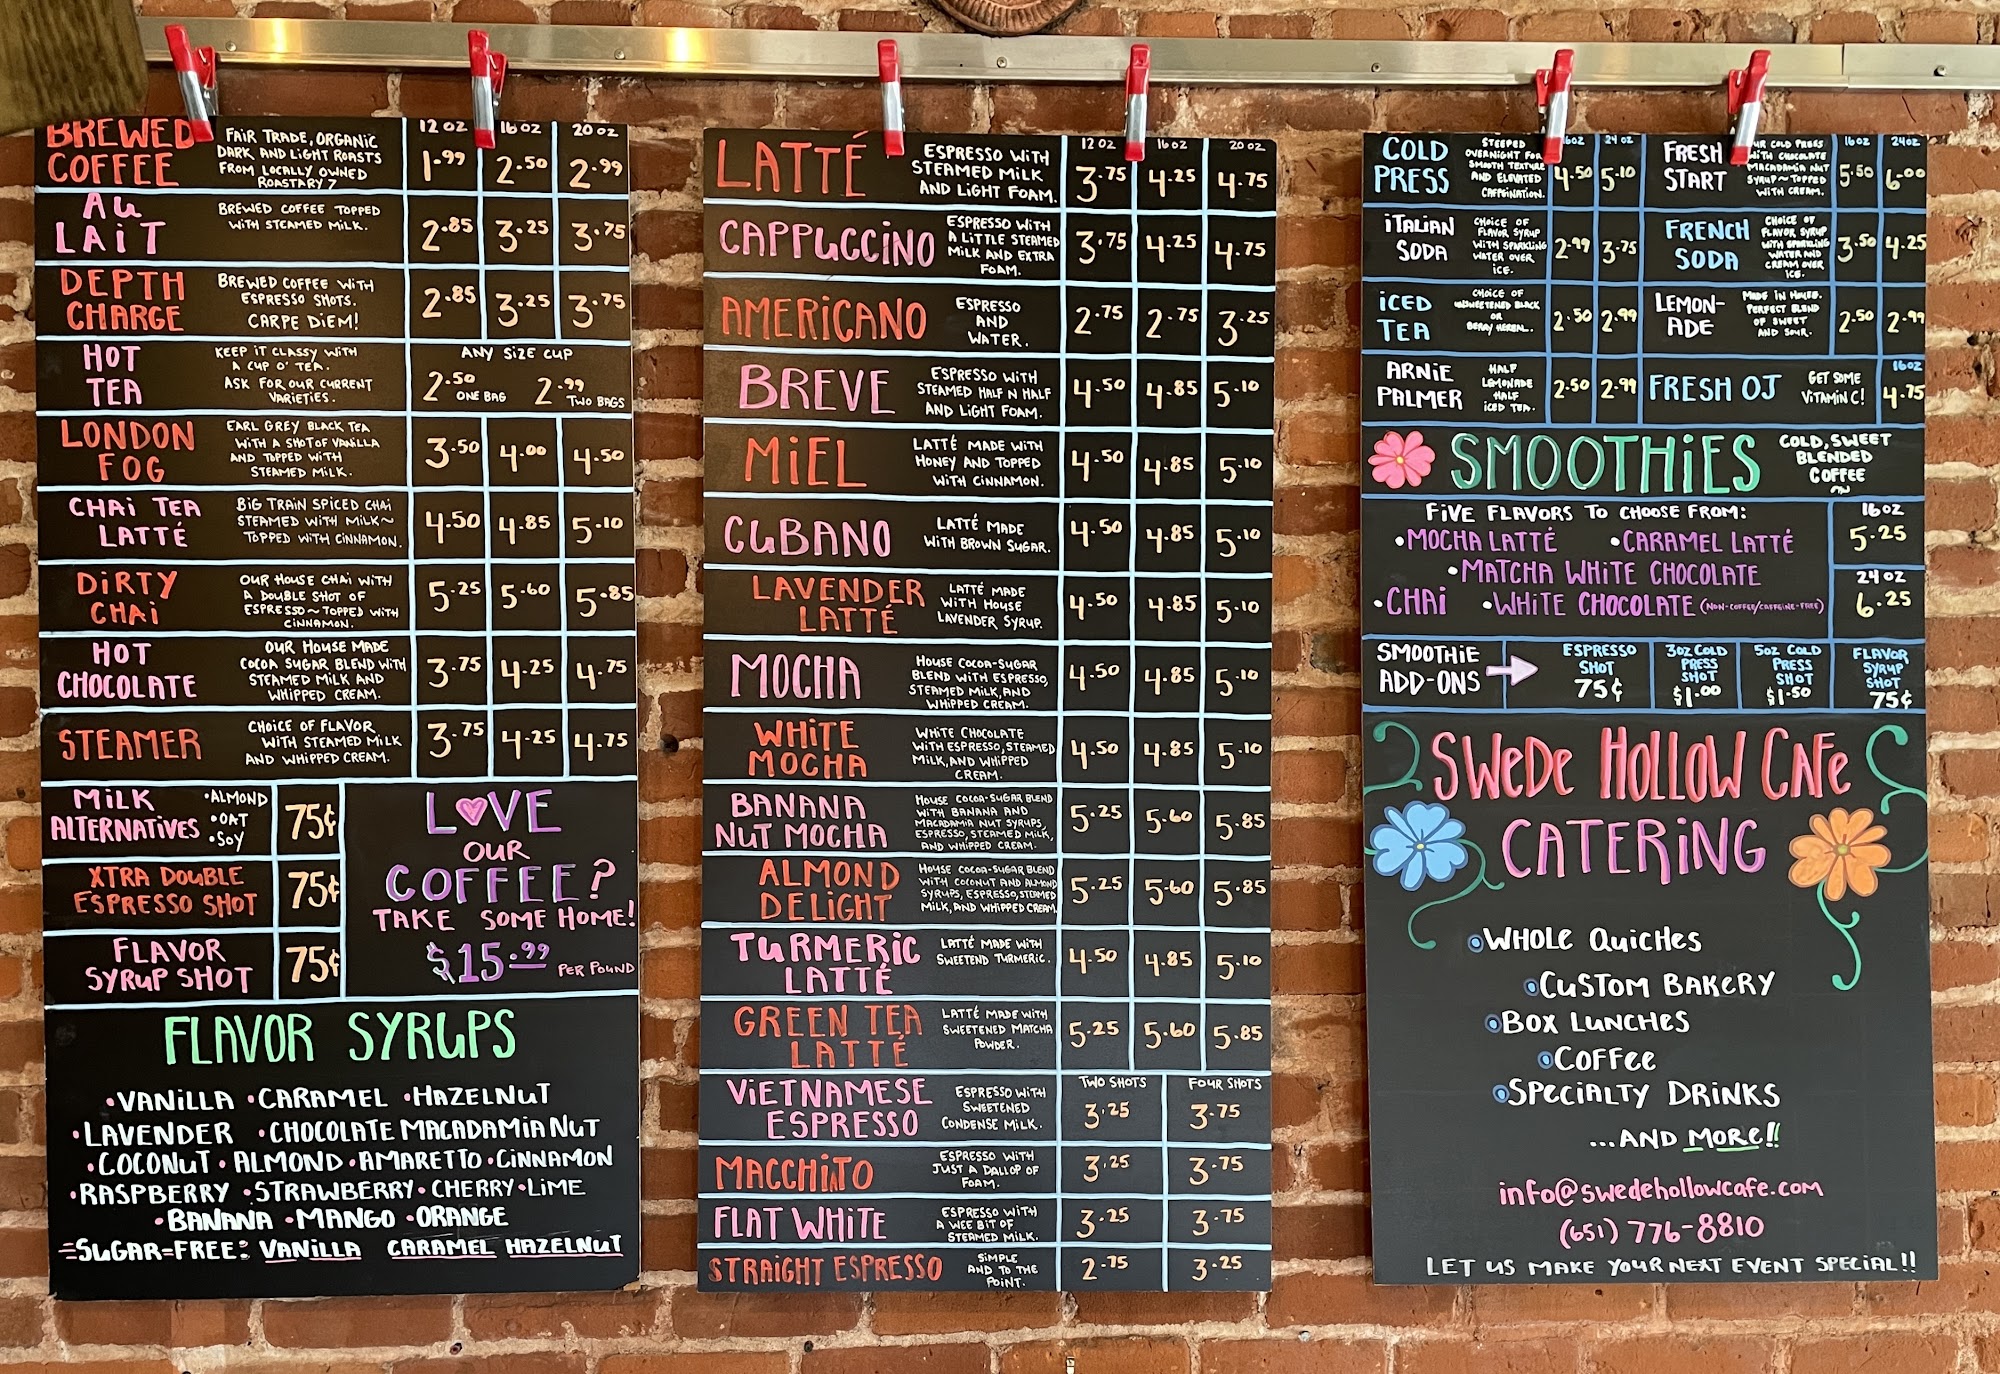 BREWED COFFEE
FAIR TRADE, ORGANIC
DARK AND LIGHT ROASTS
FROM LOCALLY OWNED
ROASTARY 7
12 oz 16 oz 20 oz
1.99 2.50 2.99
AU LAIT
BREWED COFFEE TOPPED
WITH STEAMED MILK.
2.85 3.25 3.75
DEPTH CHARGE
BREWED COFFEE WITH
ESPRESSO SHOTS.
CARPE DIEM!
2.85 3.25 3.75
HOT TEA
KEEP IT CLASSY WITH
A CUP O' TEA.
ASK FOR OUR CURRENT
VARIETIES.
ANY SIZE CUP
2.50 ONE BAG 2.99 TWO BAGS
LONDON FOG
EARL GREY BLACK TEA
WITH A SHOT OF VANILLA
AND TOPPED WITH
STEAMED MILK.
3.50 4.00 4.50
CHAI TEA LATTÉ
BIG TRAIN SPICED CHAI
STEAMED WITH MILK~
TOPPED WITH CINNAMON.
4.50 4.85 5.10
DIRTY CHAI
OUR HOUSE CHAI WITH
A DOUBLE SHOT OF
ESPRESSO~TOPPED WITH
CINNAMON.
5.25 5.60 5.85
HOT CHOCOLATE
OUR HOUSE MADE
COCOA SUGAR BLEND WITH
STEAMED MILK AND
WHIPPED CREAM.
3.75 4.25 4.75
STEAMER
CHOICE OF FLAVOR
WITH STEAMED MILK
AND WHIPPED CREAM.
3.75 4.25 4.75
MILK ALTERNATIVES
•ALMOND
•OAT
•SOY
75¢
XTRA DOUBLE
ESPRESSO SHOT
75¢
FLAVOR
SYRUP SHOT
75¢
LOVE
OUR
COFFEE?
TAKE SOME HOME!
$15.99 PER POUND
FLAVOR SYRUPS
•VANILLA •CARAMEL •HAZELNUT
•LAVENDER •CHOCOLATE MACADAMIA NUT
•COCONUT •ALMOND •AMARETTO •CINNAMON
•RASPBERRY •STRAWBERRY •CHERRY •LIME
•BANANA •MANGO •ORANGE
=SUGAR=FREE: VANILLA CARAMEL HAZELNUT
LATTÉ
ESPRESSO WITH
STEAMED MILK
AND LIGHT FOAM.
12 oz 16 oz 20 oz
3.75 4.25 4.75
CAPPUCCINO
ESPRESSO WITH
A LITTLE STEAMED
MILK AND EXTRA
FOAM.
3.75 4.25 4.75
AMERICANO
ESPRESSO
AND
WATER.
2.75 2.75 3.25
BREVE
ESPRESSO WITH
STEAMED HALF N HALF
AND LIGHT FOAM.
4.50 4.85 5.10
MIEL
LATTÉ MADE WITH
HONEY AND TOPPED
WITH CINNAMON.
4.50 4.85 5.10
CUBANO
LATTÉ MADE
WITH BROWN SUGAR.
4.50 4.85 5.10
LAVENDER LATTÉ
LATTÉ MADE
WITH HOUSE
LAVENDER SYRUP.
4.50 4.85 5.10
MOCHA
HOUSE COCOA-SUGAR
BLEND WITH ESPRESSO,
STEAMED MILK, AND
WHIPPED CREAM.
4.50 4.85 5.10
WHITE MOCHA
WHITE CHOCOLATE
WITH ESPRESSO, STEAMED
MILK, AND WHIPPED
CREAM.
4.50 4.85 5.10
BANANA NUT MOCHA
HOUSE COCOA-SUGAR BLEND
WITH BANANA AND
MACADAMIA NUT SYRUPS,
ESPRESSO, STEAMED MILK,
AND WHIPPED CREAM.
5.25 5.60 5.85
ALMOND DELIGHT
HOUSE COCOA-SUGAR BLEND
WITH COCONUT AND ALMOND
SYRUPS, ESPRESSO, STEAMED
MILK, AND WHIPPED CREAM
5.25 5.60 5.85
TURMERIC LATTÉ
LATTÉ MADE WITH
SWEETEND TURMERIC.
4.50 4.85 5.10
GREEN TEA LATTÉ
LATTÉ MADE WITH
SWEETENED MATCHA
POWDER.
5.25 5.60 5.85
VIETNAMESE ESPRESSO
ESPRESSO WITH
SWEETENED
CONDENSE MILK.
TWO SHOTS FOUR SHOTS
3.25 3.75
MACCHIATO
ESPRESSO WITH
JUST A DALLOP OF
FOAM.
3.25 3.75
FLAT WHITE
ESPRESSO WITH
A WEE BIT OF
STEAMED MILK.
3.25 3.75
STRAIGHT ESPRESSO
SIMPLE
AND TO THE
POINT.
2.75 3.25
COLD PRESS
STEEPED
OVERNIGHT FOR
SMOOTH TEXTURE
AND ELEVATED
CAFFEINATION.
16oz 24 oz
4.50 5.10
FRESH START
OUR COLD PRESS
WITH CHOCOLATE
MACADAMIA NUT
SYRUP~TOPPED
WITH CREAM.
16oz 24oz
5.50 6.00
ITALIAN SODA
CHOICE OF
FLAVOR SYRUP
WITH SPARKLING
WATER OVER
ICE.
2.99 3.75
FRENCH SODA
CHOICE OF
FLAVOR SYRUP
WITH SPARKLING
WATER AND
CREAM OVER
ICE.
3.50 4.25
ICED TEA
CHOICE OF
UNSWEETENED BLACK
OR
BERRY HERBAL.
2.50 2.99
LEMON-
ADE
MADE IN HOUSE.
PERFECT BLEND
OF SWEET
AND SOUR.
2.50 2.99
ARNIE PALMER
HALF
LEMONADE
HALF
ICED TEA.
2.50 2.99
FRESH OJ
GET SOME
VITAMIN C!
16oz
4.75
SMOOTHIES
COLD, SWEET
BLENDED
COFFEE
FIVE FLAVORS TO CHOOSE FROM:
•MOCHA LATTÉ •CARAMEL LATTÉ
•MATCHA WHITE CHOCOLATE
•CHAI •WHITE CHOCOLATE (NON-COFFEE/CAFFEINE-FREE)
16oz
5.25
24 oz
6.25
SMOOTHIE
ADD-ONS
ESPRESSO
SHOT
75¢
3oz COLD
PRESS
SHOT
$1.00
5oz COLD
PRESS
SHOT
$1.50
FLAVOR
SYRUP
SHOT
75¢
SWEDE HOLLOW CAFE
CATERING
WHOLE QUICHES
CUSTOM BAKERY
BOX LUNCHES
COFFEE
SPECIALTY DRINKS
...AND MORE!!
info@swedehollowcafe.com
(651) 776-8810
LET US MAKE YOUR NEXT EVENT SPECIAL!!